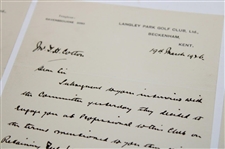 LANGLEY PARK GOLF CLUB, LTD.,
BECKENHAM,
KENT.
19th March 1926
Mr. T. H. Cotton
Dear Sir
Subsequent to your interview with
the Committee yesterday they decided to
engage you as Professional to this Club on
the terms mentioned to you then
Retaining Fee